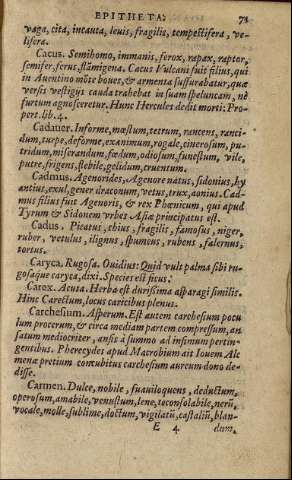 EPITHETA. 71
vaga, cita, incauta, leuis, fragilis, tempestifera, ve-
lifera.
Cacus. Semihomo, immanis, ferox, rapax, raptor,
semifer, ferus, flāmigena. Cacus Vulcani fuit filius, qui
in Auentino mōte boues, & armenta suffurabatur, quæ
versis vestigijs cauda trahebat in suam speluncam, ne
furtum agnosceretur. Hunc Hercules dedit morti: Pro-
pert. lib. 4.
Cadauer. Informe, mœstum, tetrum, rancens, ranci-
dum, turpe, deforme, exanimum, rogale, cinerosum, pu-
tridum, miserandum, fœdum, odiosum, funestum, vile,
putre, frigens, flebile, gelidum, cruentum.
Cadmus. Agenorides, Agenore natus, sidonius, hy
antius, exul, gener draconum, vetus, trux, aonius. Cad-
mus filius fuit Agenoris, & rex Phœnicum, qui apud
Tyrum & Sidonem vrbes Asiæ principatus est.
Cadus. Picatus, chius, fragilis, famosus, niger,
ruber, vetulus, ilignus, spumeus, rubens, falernus,
tortus.
Caryca. Rugosa. Ouidius: Quid vult palma sibi ru-
gosaque caryca, dixi. Species est ficus.
Carex. Acuta. Herba est durissima asparagi similis.
Hinc Carectum, locus caricibus plenus.
Carchesium. Asperum. Est autem carchesium pocu
lum procerum, & circa mediam partem compressum, an
satum mediocriter, ansis à summo ad infimum pertin-
gentibus. Pherecydes apud Macrobium ait Iouem Alc
menæ pretium concubitus carchesium aureum dono de-
disse.
Carmen. Dulce, nobile, suauiloquens, deductum,
operosum, amabile, venustum, lene, incōsolabile, neruū,
vocale, molle, sublime, doctum, vigilatū, castaliū, blan-
E 4 dum,